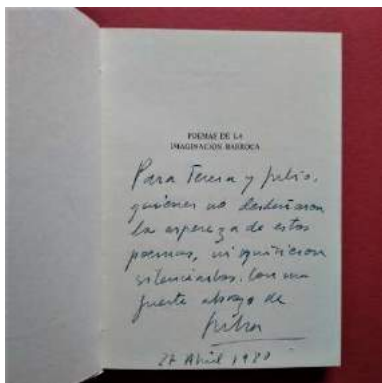 POEMAS DE LA
IMAGINACION BARROCA
Para Teresa y Julio,
quienes no desdeñaron
la aspereza de estos
poemas, ni quisieron
silenciarlos. Con un
fuerte abrazo de
27 Abril 1980